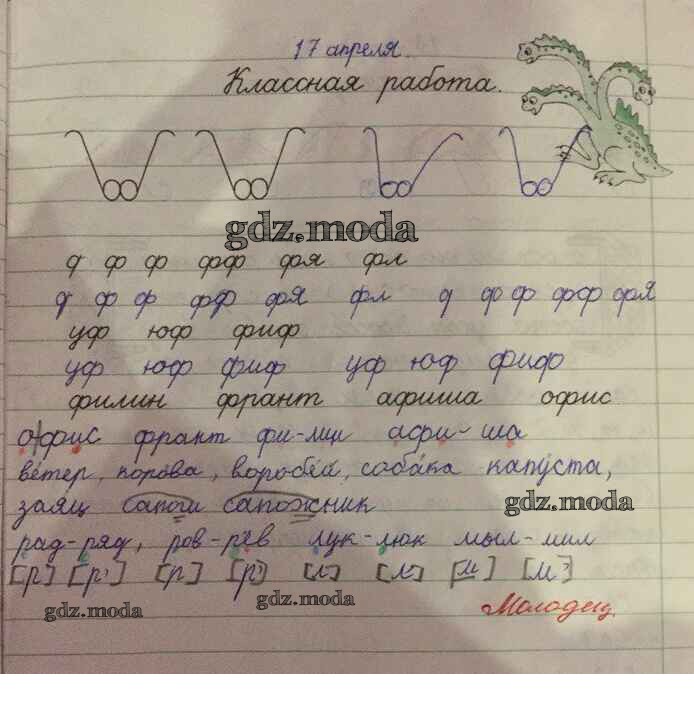 17 апреля.
Классная работа.
gdz.moda
ф ф фф фя фл
ф ф фф фя фл ф ф фф фя
уф юф фиф
уф юф фиф уф юф фиф
филин франт афиша офис
офис франт фи-лин афи-ша
ветер, корова, воробей, собака капуста,
заяц сапоги сапожник
gdz.moda
рад-ряд, ров-рёв лук-люк мыл-мил
[р] [р'] [р] [р'] [л] [л'] [м] [м']
gdz.moda
gdz.moda
Молодец